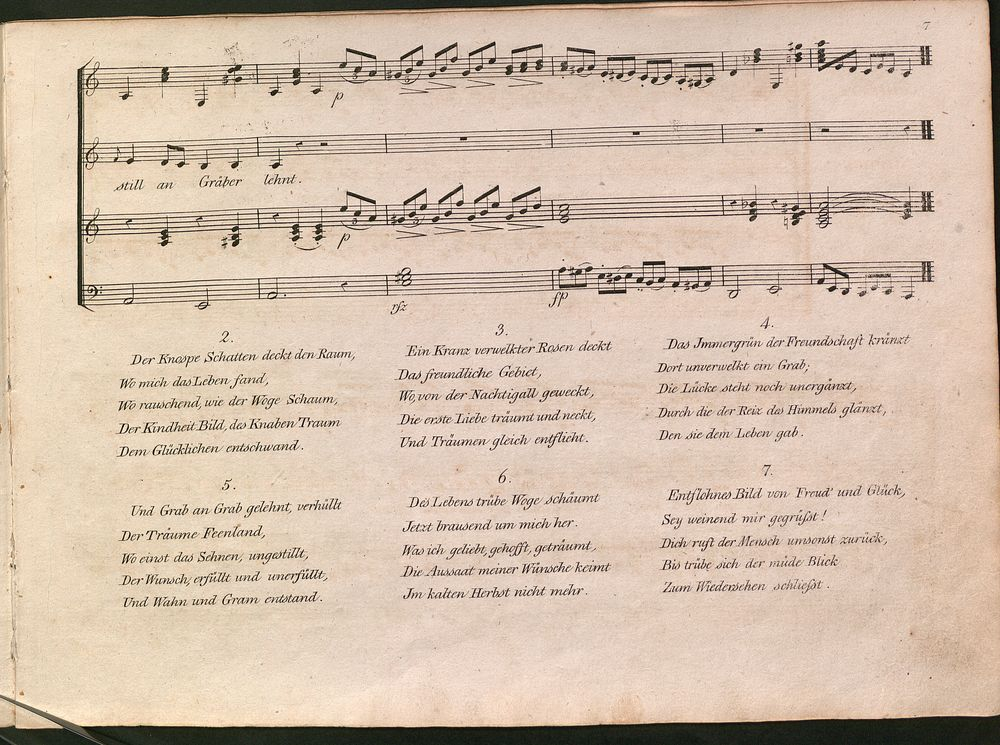 7
p
still an Gräber lehnt.
p
rfz
fp
2.
Der Knospe Schatten deckt den Raum,
Wo mich das Leben fand,
Wo rauschend, wie der Woge Schaum,
Der Kindheit Bild, des Knaben Traum
Dem Glücklichen entschwand.
3.
Ein Kranz verwelkter Rosen deckt
Das freundliche Gebiet,
Wo, von der Nachtigall geweckt,
Die erste Liebe träumt und neckt,
Und Träumen gleich entflieht.
4.
Das Jmmergrün der Freundschaft kränzt
Dort unverwelkt ein Grab;
Die Lücke steht noch unergänzt,
Durch die der Reiz des Himmels glänzt,
Den sie dem Leben gab.
5.
Und Grab an Grab gelehnt, verhüllt
Der Träume Feenland,
Wo einst das Sehnen, ungestillt,
Der Wunsch, erfüllt und unerfüllt,
Und Wahn und Gram entstand.
6.
Des Lebens trübe Woge schäumt
Jetzt brausend um mich her.
Was ich geliebt, gehofft, geträumt,
Die Aussaat meiner Wünsche keimt
Jm kalten Herbst nicht mehr.
7.
Entflohnes Bild von Freud' und Glück,
Sey weinend mir gegrüſst!
Dich ruft der Mensch umsonst zurück,
Bis trübe sich der müde Blick
Zum Wiedersehen schlieſst.